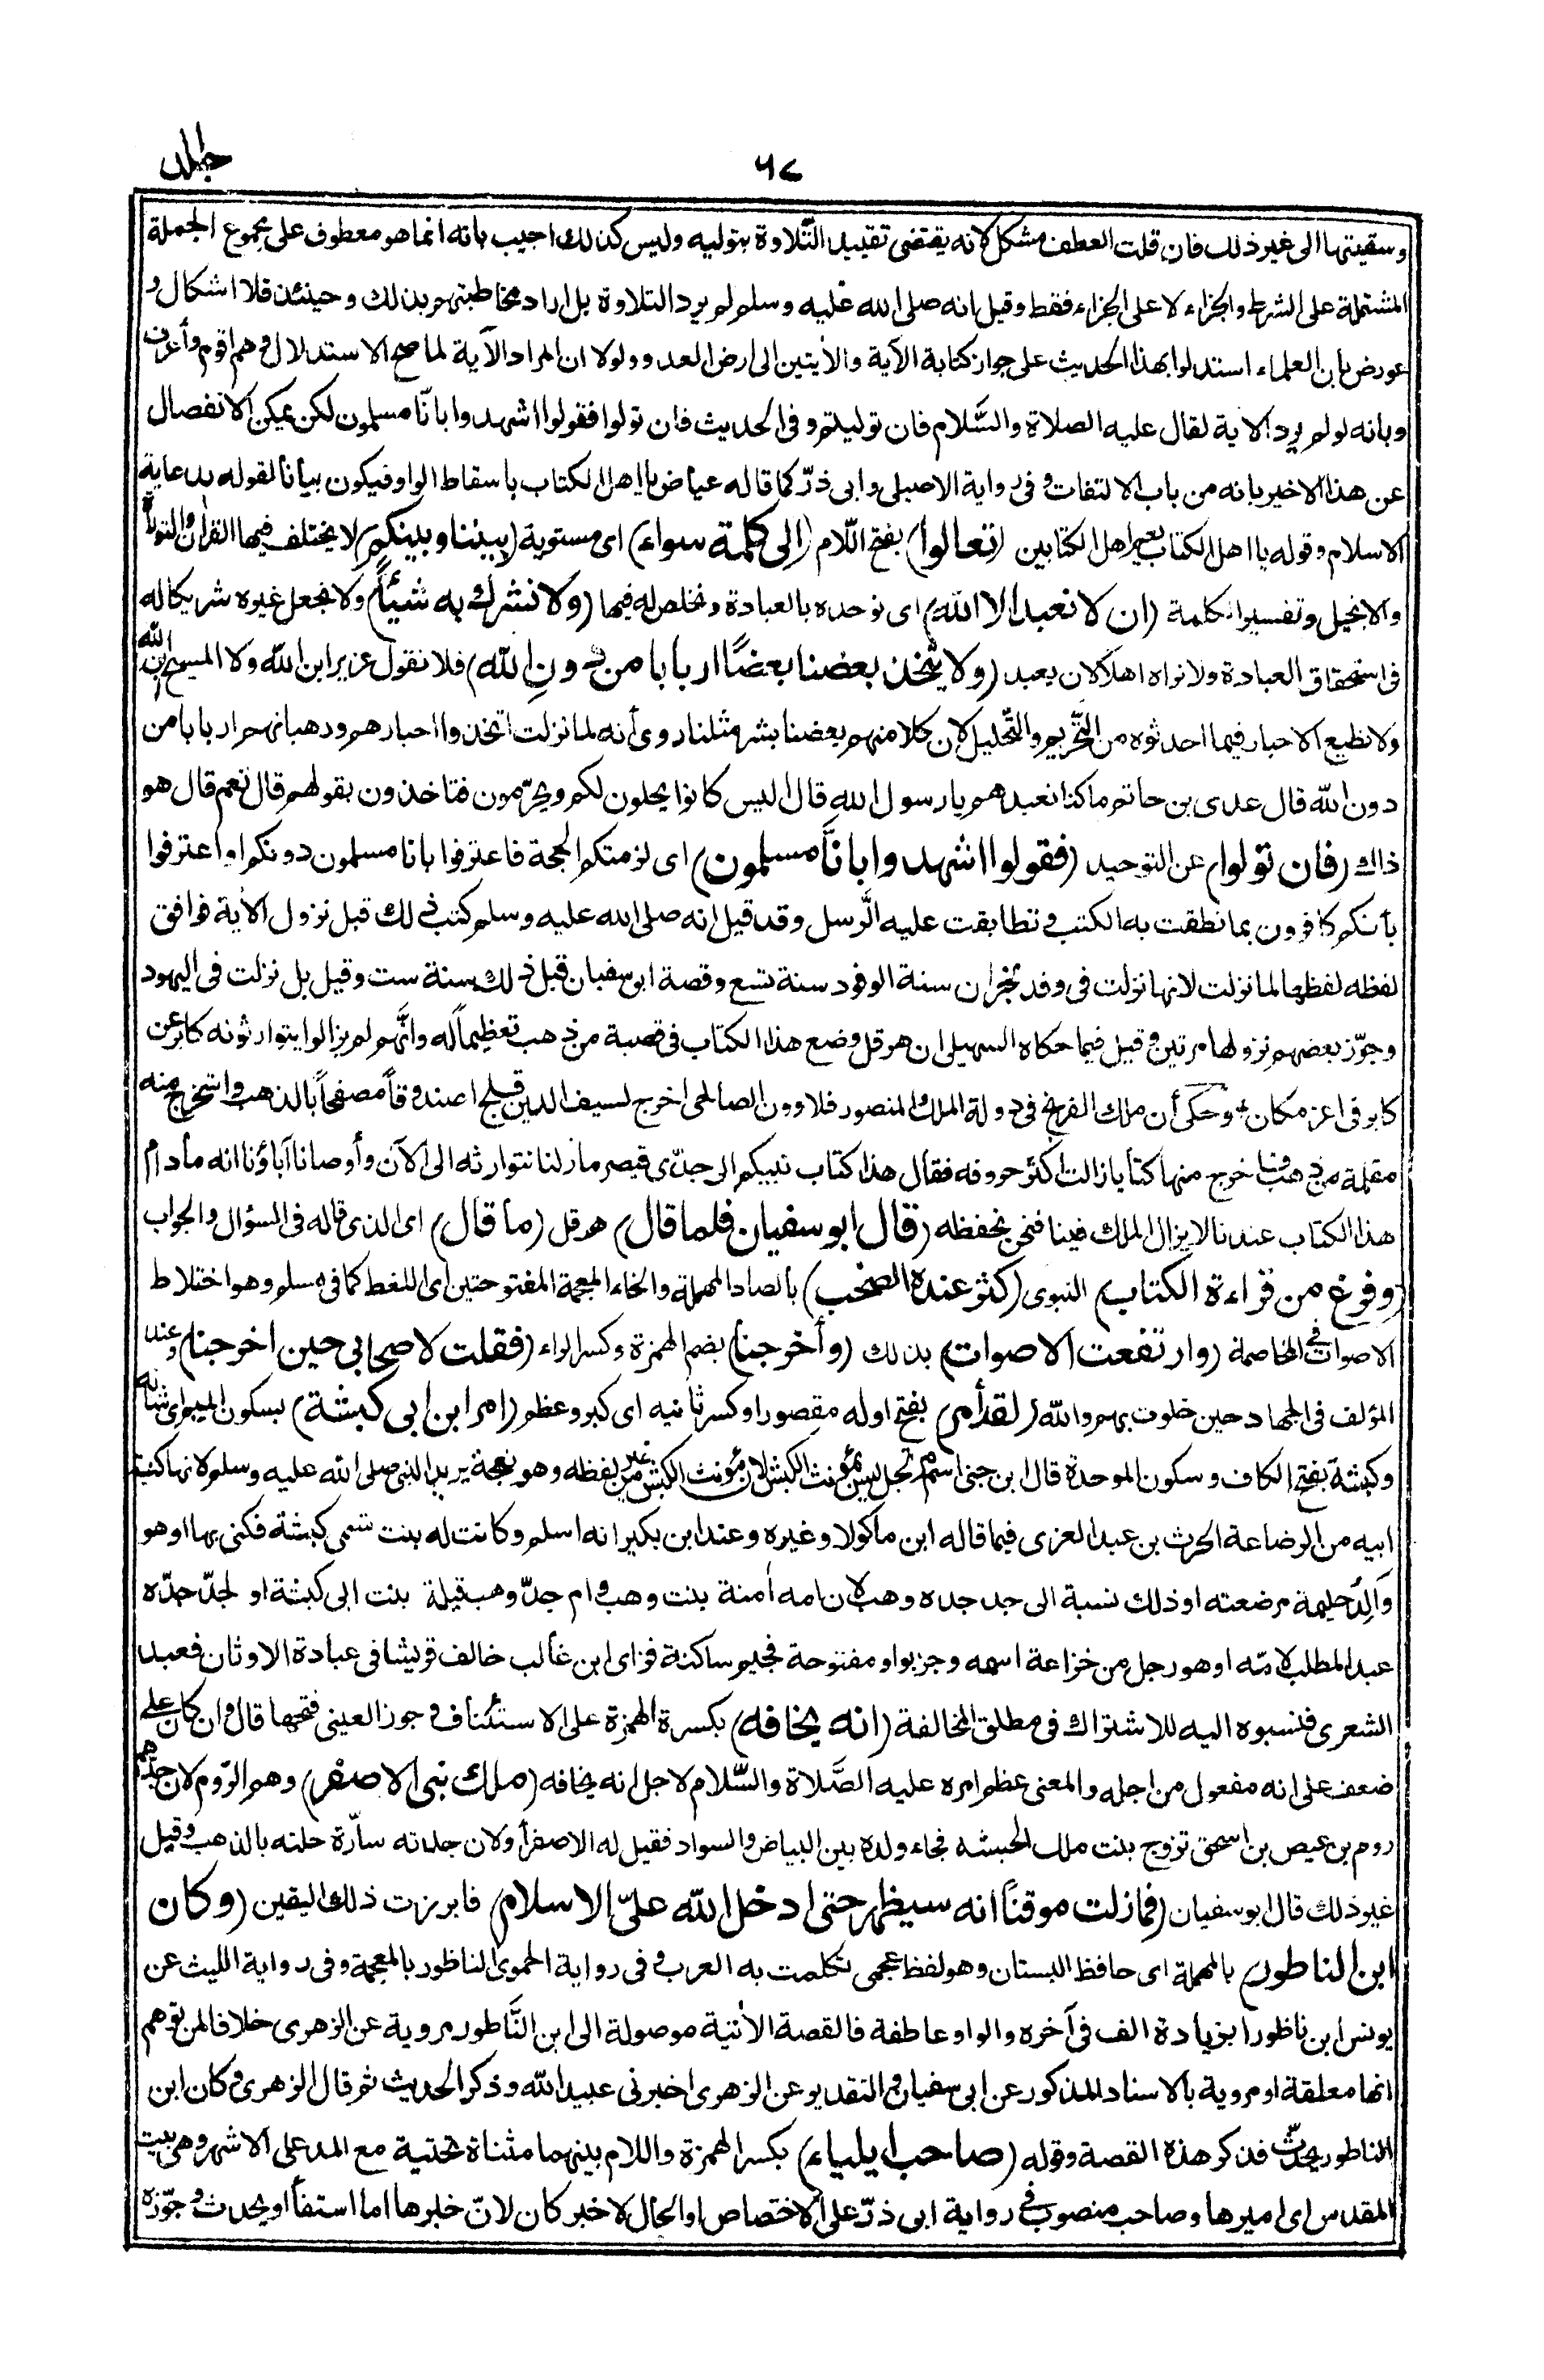 جلد
٦٨
وسقيتها الى غير ذلك فان قلت العطف مشكل لانه يقتضى تقييد التّلاوة بتوليه وليس كذلك اجيب بانه انما هو معطوف على مجموع الجملة
المشتملة على الشرط والجزاء لا على الجزاء فقط وقيل انه صلى الله عليه وسلم لم يرد التلاوة بل اراد مخاطبتهم بذلك وحينئذ فلا اشكال و
عورض بان العلماء استدلوا بهذا الحديث على جواز كتابة الآية والآيتين الى ارض العدو ولولا ان المراد الآية لما صح الاستدلال وهم اقوم وأعرف
وبانه لو لم يرد الاية لقال عليه الصلاة والسَّلام فان توليتم وفى الحديث فان تولوا فقولوا اشهدوا بانّا مسلمون لكن يمكن الانفصال
عن هذا الاخير بانه من باب الالتفات وفى رواية الاصيلى وابى ذرّ كما قاله عياض يا اهل الكتاب باسقاط الواو فيكون بيانا لقوله بدعاية
الاسلام وقوله يا اهل الكتاب يعم اهل الكتابين (تعالوا) بفتح اللّام (الى كلمة سواء) اى مستوية (بيننا وبينكم) لا يختلف فيها القرآن والتوراة
والانجيل وتفسير الكلمة (ان لا نعبد الا الله) اى نوحده بالعبادة ونخلص له فيها (ولا نشرك به شيئًا) ولا نجعل غيره شريكا له
فى استحقاق العبادة ولا نراه اهلا لان يعبد (ولا يتّخذ بعضنا بعضًا اربابا من دون الله) فلا نقول عزير ابن الله ولا المسيح ابن الله
ولا نطيع الاحبار فيما احدثوه من التّحريم والتّحليل لان كلا منهم بعضنا بشر مثلنا روى أنه لما نزلت اتخذوا احبارهم ورهبانهم اربابا من
دون الله قال عدى بن حاتم ما كنا نعبدهم يا رسول الله قال اليس كانوا يحلون لكم ويحرّمون فتاخذون بقولهم قال نعم قال هو
ذاك (فان تولوا) عن التوحيد (فقولوا اشهدوا بانَّا مسلمون) اى لزمتكم الحجة فاعترفوا بانا مسلمون دونكم او اعترفوا
بأنكم كافرون بما نطقت به الكتب وتطابقت عليه الرّسل وقد قيل انه صلى الله عليه وسلم كتب ذلك قبل نزول الآية فوافق
لفظه لفظها لما نزلت لانها نزلت فى وفد نجران سنة الوفود سنة تسع وقصة ابو سفيان قبل ذلك سنة ست وقيل بل نزلت فى اليهود
وجوّز بعضهم نزولها مرتين وقيل فيما حكاه السهيلى ان هرقل وضع هذا الكتاب فى قصبة من ذهب تعظيماً له وانّهم لم يزالوا يتوارثونه كابر عن
كابر فى اعز مكان وحكى أن ملك الفرنج فى دولة الملك المنصور قلاوون الصالحى اخرج لسيف الدين قلج صندوقاً مصفحاً بالذهب واستخرج منه
مقلمة من ذهب فاخرج منها كتابا زالت اكثر حروفه فقال هذا كتاب نبيكم الى جدّى قيصر ما زلنا نتوارثه الى الآن وأوصانا آباؤنا انه مادام
هذا الكتاب عندنا لا يزال الملك فينا فنحن نحفظه (قال ابو سفيان فلما قال) هرقل (ما قال) اى الذى قاله فى السؤال والجواب
(وفرغ من قراءة الكتاب) النبوى (كثر عنده الصخب) بالصاد المهملة والخاء المعجمة المفتوحتين اى اللغط كما فى مسلم وهو اختلاط
الاصوات فى المخاصمة (وارتفعت الاصوات) بذلك (وأخرجنا) بضم الهمزة وكسر الراء (فقلت لاصحابى حين اخرجنا) وعند
المؤلف فى الجهاد حين خلوت بهم والله (لقد أمر) بفتح اوله مقصورا وكسر ثانيه اى كبر وعظم (امر ابن ابى كبشة) بسكون الميم اى شانه
وكبشة بفتح الكاف وسكون الموحدة قال ابن جنى اسم مرتجل ليس بمؤنث الكبش لان مؤنث الكبش من غير لفظه وهو نعجة يريد النبى صلى الله عليه وسلم لانها كنية
ابيه من الرضاعة الحرث بن عبد العزى فيما قاله ابن ماكولا وغيره وعند ابن بكير انه اسلم وكانت له بنت تسمى كبشة فكنى بها او هو
والد حليمة مرضعته او ذلك نسبة الى جد جده وهب لان امه آمنة بنت وهب وام جدّ وهب قيلة بنت ابى كبشة او لجدّ جدّه
عبد المطلب لامّه او هو رجل من خزاعة اسمه وجز بواو مفتوحة فجيم ساكنة فزاى ابن غالب خالف قريشا فى عبادة الاوثان فعبد
الشعرى فنسبوه اليه للاشتراك فى مطلق المخالفة (انه يخافه) بكسرة الهمزة على الاستئناف وجوز العينى فتحها قال وان كان على
ضعف على انه مفعول من اجله والمعنى عظم امره عليه الصَّلاة والسّلام لاجل انه يخافه (ملك بنى الاصفر) وهم الرّوم لان جدهم
روم بن عيص بن اسحق تزوج بنت ملك الحبشة فجاء ولده بين البياض والسواد فقيل له الاصفر أو لان جدته سارّة حلته بالذهب وقيل
غير ذلك قال ابو سفيان (فما زلت موقناً انه سيظهر حتى ادخل الله علىّ الاسلام) فابرزت ذلك اليقين (وكان
ابن الناطور) بالمهملة اى حافظ البستان وهو لفظ عجمى تكلمت به العرب وفى رواية الحموى الناظور بالمعجمة وفى رواية الليث عن
يونس ابن ناظورا بزيادة الف فى آخره والواو عاطفة فالقصة الآتية موصولة الى ابن النَّاطور مروية عن الزهرى خلافا لمن توهم
انها معلقة او مروية بالاسناد المذكور عن ابى سفيان والتقدير عن الزهرى اخبرنى عبيد الله وذكر الحديث ثم قال الزهرى وكان ابن
الناطور يحدّث فذكر هذه القصة وقوله (صاحب ايلياء) بكسر الهمزة واللام بينهما مثناة تحتية مع المد على الاشهر وهى بيت
المقدس اى اميرها وصاحب منصوب فى رواية ابى ذرّ على الاختصاص او الحال لا خبر كان لانّ خبرها اما اسقفا او يحدث وجوّزه